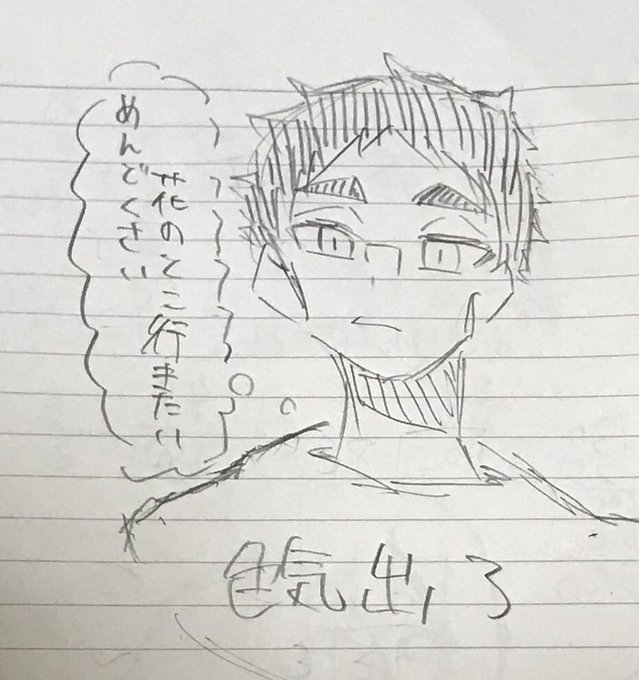 花のとこ行きたい
めんどくさい
色気出てる